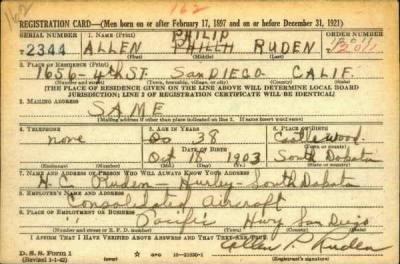 162
162
REGISTRATION CARD—(Men born on or after February 17, 1897 and on or before December 31, 1921)
SERIAL NUMBER
1. NAME (Print)
ORDER NUMBER
PHILIP
2344
ALLEN
RUDEN
12011
(First) (Middle) (Last)
2. PLACE OF RESIDENCE (Print)
1656-4th ST. SAN DIEGO CALIF.
(Number and street) (Town, township, village, or city) (County) (State)
[THE PLACE OF RESIDENCE GIVEN ON THE LINE ABOVE WILL DETERMINE LOCAL BOARD
JURISDICTION; LINE 2 OF REGISTRATION CERTIFICATE WILL BE IDENTICAL]
3. MAILING ADDRESS
SAME
[Mailing address if other than place indicated on line 2. If same insert word same]
4. TELEPHONE
5. AGE IN YEARS
6. PLACE OF BIRTH
none
38
Castlewood
DATE OF BIRTH
(Town or county)
Oct 18 1903
South Dakota
(Exchange) (Number)
(Mo.) (Day) (Yr.)
(State or country)
7. NAME AND ADDRESS OF PERSON WHO WILL ALWAYS KNOW YOUR ADDRESS
H. C. Ruden - Hurley - South Dakota
8. EMPLOYER'S NAME AND ADDRESS
Consolidated Aircraft
9. PLACE OF EMPLOYMENT OR BUSINESS
Pacific Hwy San Diego
(Number and street or R. F. D. number) (Town) (County) (State)
I AFFIRM THAT I HAVE VERIFIED ABOVE ANSWERS AND THAT THEY ARE TRUE.
D. S. S. Form 1
(Revised 1-1-42)
(over)
Allen P. Ruden